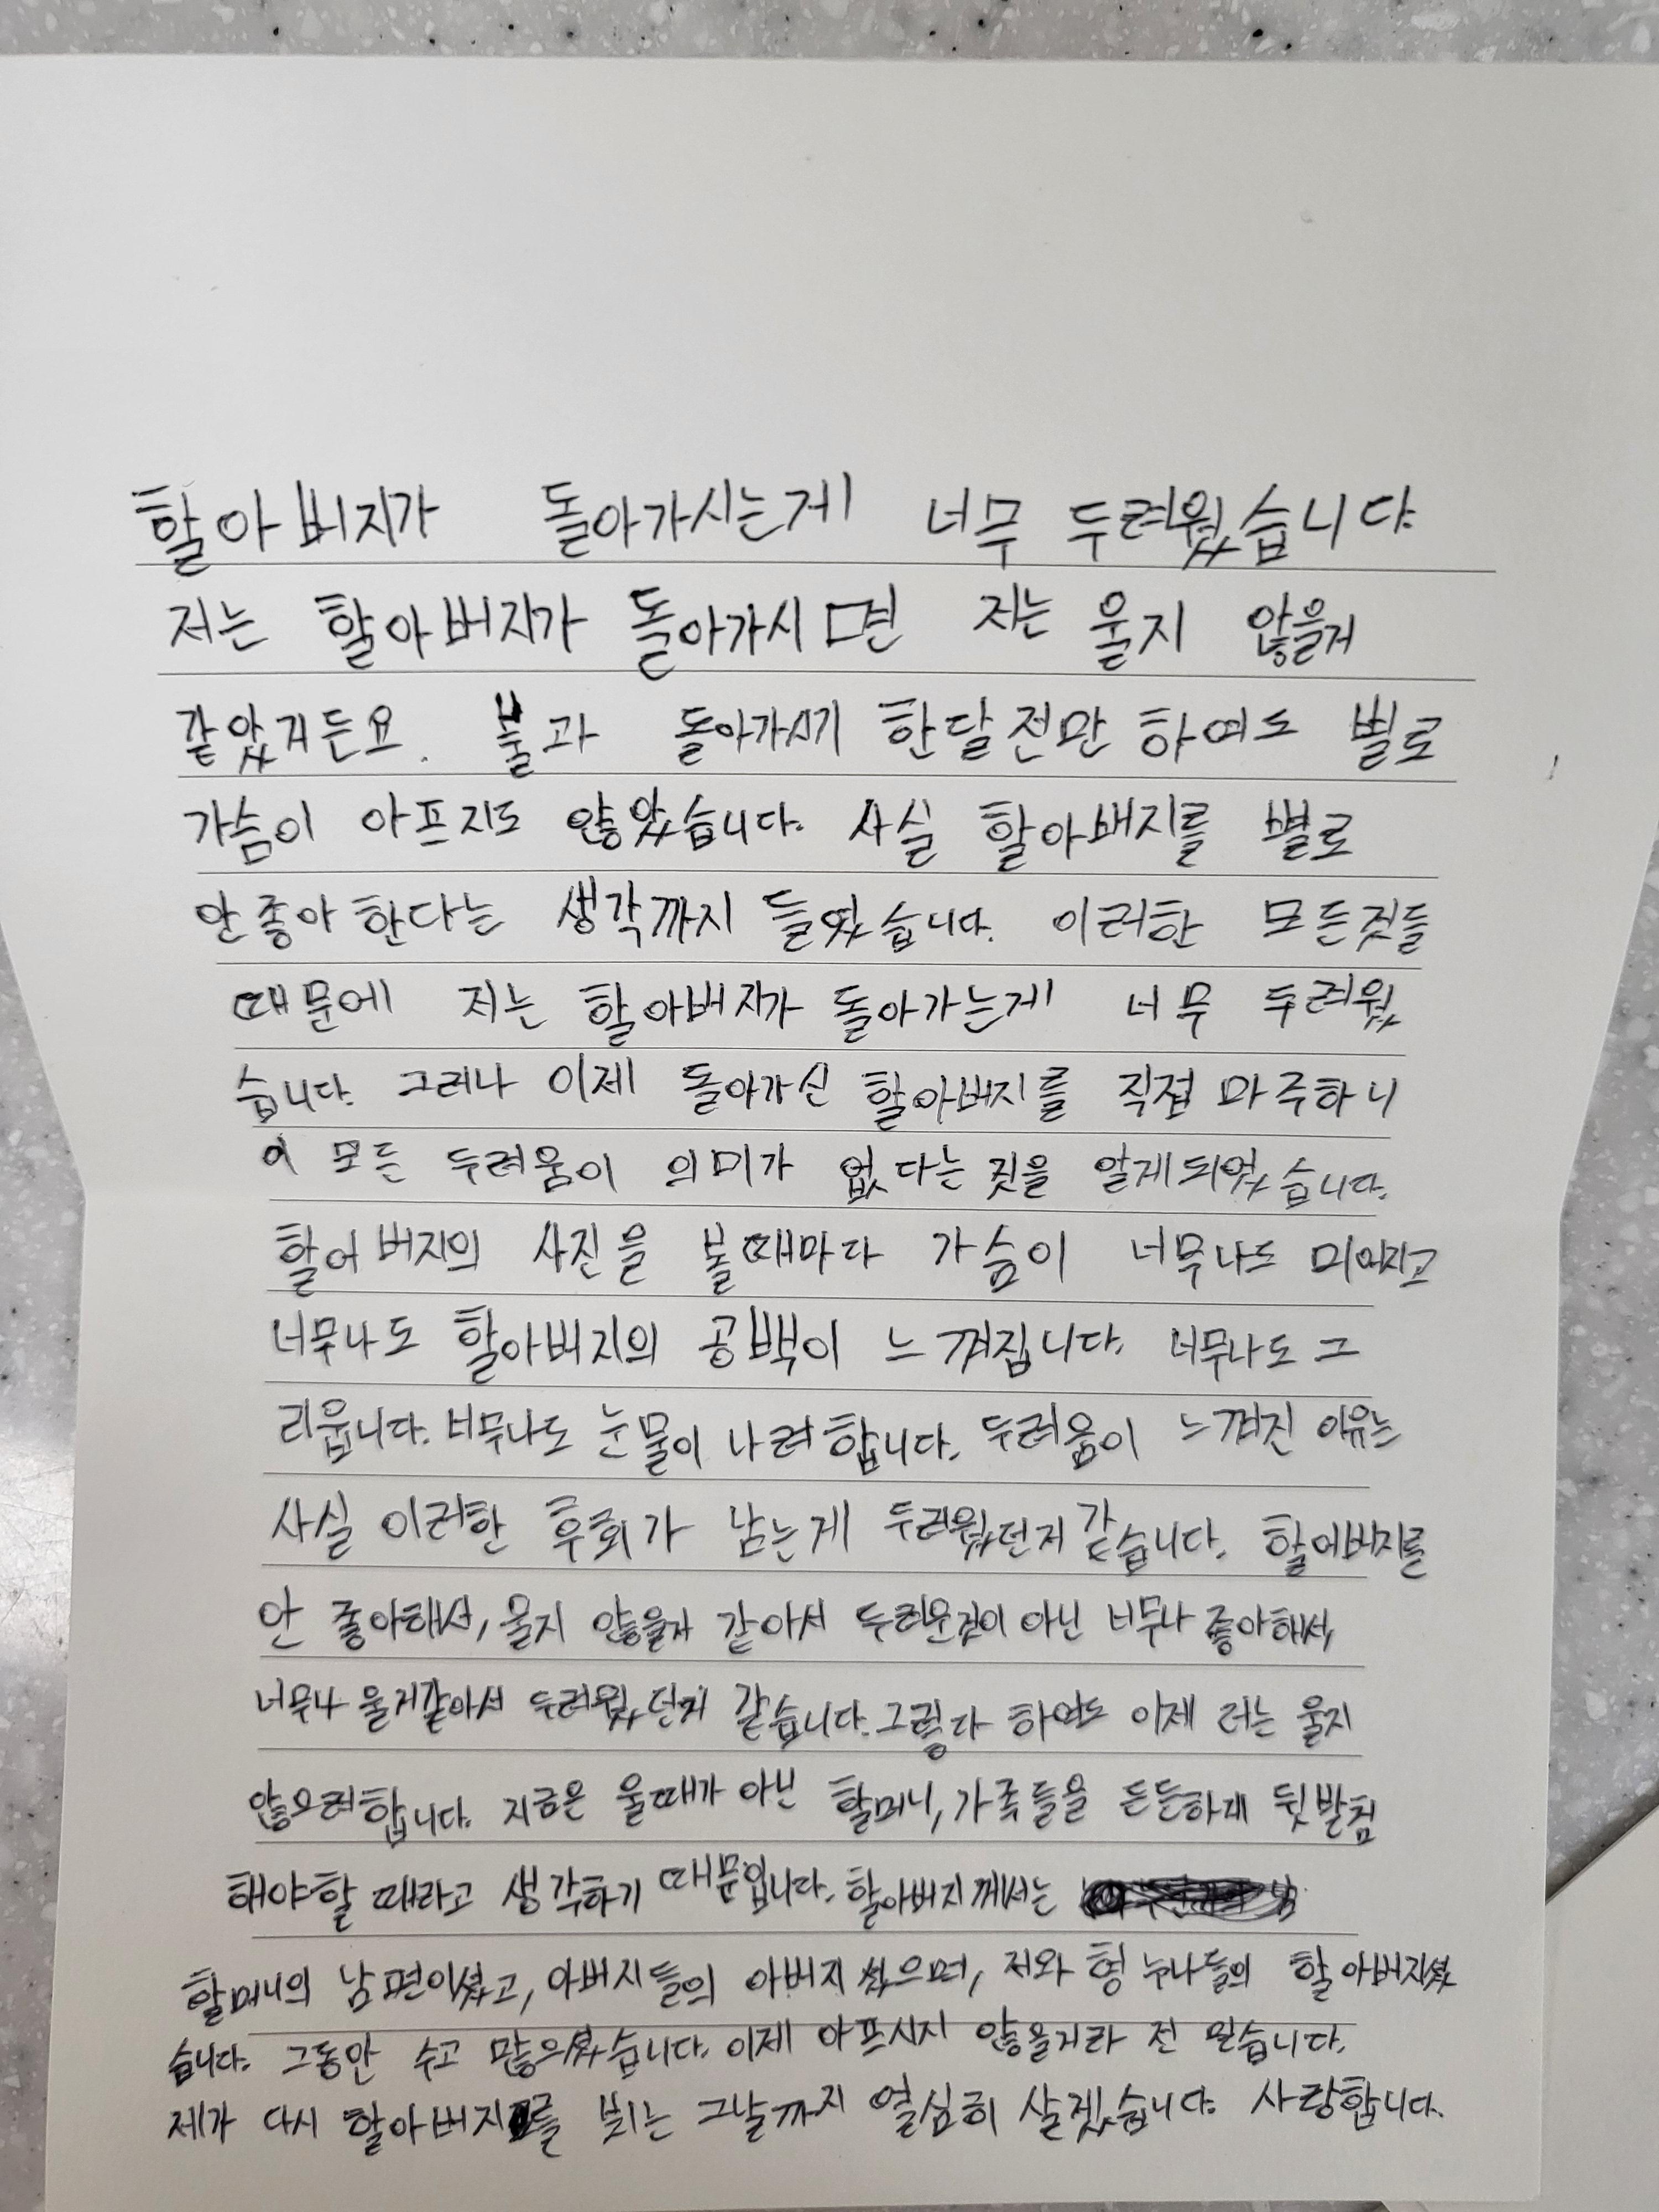 할아버지가 돌아가시는게 너무 두려웠습니다.
저는 할아버지가 돌아가시면 저는 울지 않을거
같았거든요. 불과 돌아가시기 한달전만 하여도 별로
가슴이 아프지도 않았습니다. 사실 할아버지를 별로
안좋아한다는 생각까지 들었습니다. 이러한 모든것들
때문에 저는 할아버지가 돌아가는게 너무 두려웠
습니다. 그러나 이제 돌아가신 할아버지를 직접 마주하니
이 모든 두려움이 의미가 없다는 것을 알게되었습니다.
할어버지의 사진을 볼때마다 가슴이 너무나도 미어지고
너무나도 할아버지의 공백이 느껴집니다. 너무나도 그
리웁니다. 너무나도 눈물이 나려합니다. 두려움이 느껴진 이유는
사실 이러한 후회가 남는게 두려웠던거 같습니다. 할어버지를
안 좋아해서, 울지 않을거 같아서 두려운것이 아닌 너무나 좋아해서,
너무나 울거같아서 두려웠던거 같습니다. 그렇다 하여도 이제 저는 울지
않으려합니다. 지금은 울때가 아닌 할머니, 가족들을 든든하게 뒷받침
해야할 때라고 생각하기 때문입니다. 할아버지께서는
할머니의 남편이셨고, 아버지들의 아버지셨으며, 저와 형 누나들의 할아버지셨
습니다. 그동안 수고 많으셨습니다. 이제 아프시지 않을거라 전 믿습니다.
제가 다시 할아버지를 뵈는 그날까지 열심히 살겠습니다. 사랑합니다.